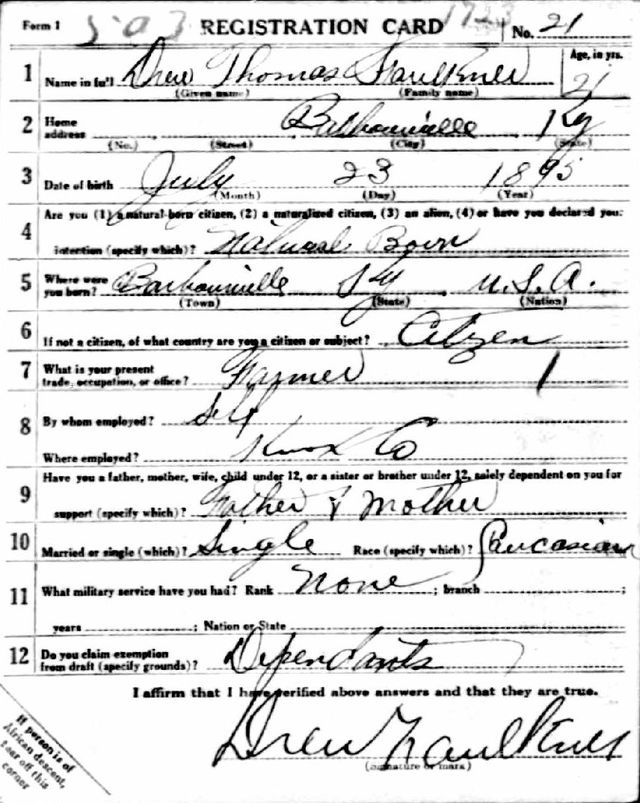 Form 1 503 REGISTRATION CARD 1723 No. 21
1 Name in full Drew Thomas Faulkner Age, in yrs. 21
(Given name) (Family name)
2 Home address Barbourville Ky
(No.) (Street) (City) (State)
3 Date of birth July 23 1895
(Month) (Day) (Year)
4 Are you (1) a natural-born citizen, (2) a naturalized citizen, (3) an alien, (4) or have you declared your
intention (specify which)? Natural Born
5 Where were you born? Barbourville Ky U.S.A.
(Town) (State) (Nation)
6 If not a citizen, of what country are you a citizen or subject? Citizen
7 What is your present
trade, occupation, or office? Farmer 1
8 By whom employed? Self
Where employed? Knox Co
9 Have you a father, mother, wife, child under 12, or a sister or brother under 12, solely dependent on you for
support (specify which)? Father & Mother
10 Married or single (which)? Single Race (specify which)? Caucasian
11 What military service have you had? Rank None ; branch ;
years ; Nation or State
12 Do you claim exemption
from draft (specify grounds)? Dependants
I affirm that I have verified above answers and that they are true.
Drew Faulkner
(Signature or mark)
If person is of
African descent,
tear off this
corner